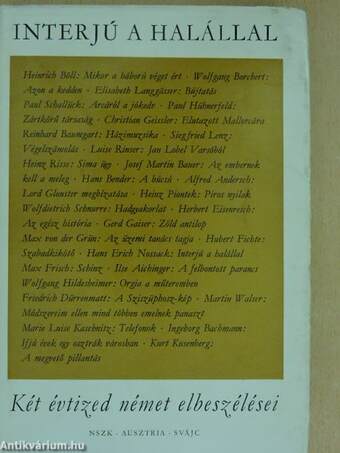 INTERJÚ A HALÁLLAL
Heinrich Böll: Mikor a háború véget ért · Wolfgang Borchert:
Azon a kedden · Elisabeth Langgässer: Bújtatás
Paul Schallück: Arcáról a jókedv · Paul Hühnerfeld:
Zártkörű társaság · Christian Geissler: Elutazott Mallorcára
Reinhard Baumgart: Házimuzsika · Siegfried Lenz:
Végelszámolás · Luise Rinser: Jan Lobel Varsóból
Heinz Risse: Sima ügy · Josef Martin Bauer: Az embernek
kell a meleg · Hans Bender: A búcsú · Alfred Andersch:
Lord Glouster megbízatása · Heinz Piontek: Piros nyilak
Wolfdietrich Schnurre: Hadgyakorlat · Herbert Eisenreich:
Az egész história · Gerd Gaiser: Zöld antilop
Max von der Grün: Az üzemi tanács tagja · Hubert Fichte:
Szabadkikötő · Hans Erich Nossack: Interjú a halállal
Max Frisch: Schinz · Ilse Aichinger: A felbontott parancs
Wolfgang Hildesheimer: Orgia a műteremben
Friedrich Dürrenmatt: A Sziszüphosz-kép · Martin Walser:
Módszereim ellen mind többen emelnek panaszt
Marie Luise Kaschnitz: Telefonok · Ingeborg Bachmann:
Ifjú évek egy osztrák városban · Kurt Kusenberg:
A megvető pillantás
Két évtized német elbeszélései
NSZK · AUSZTRIA · SVÁJC
antikvarium.hu